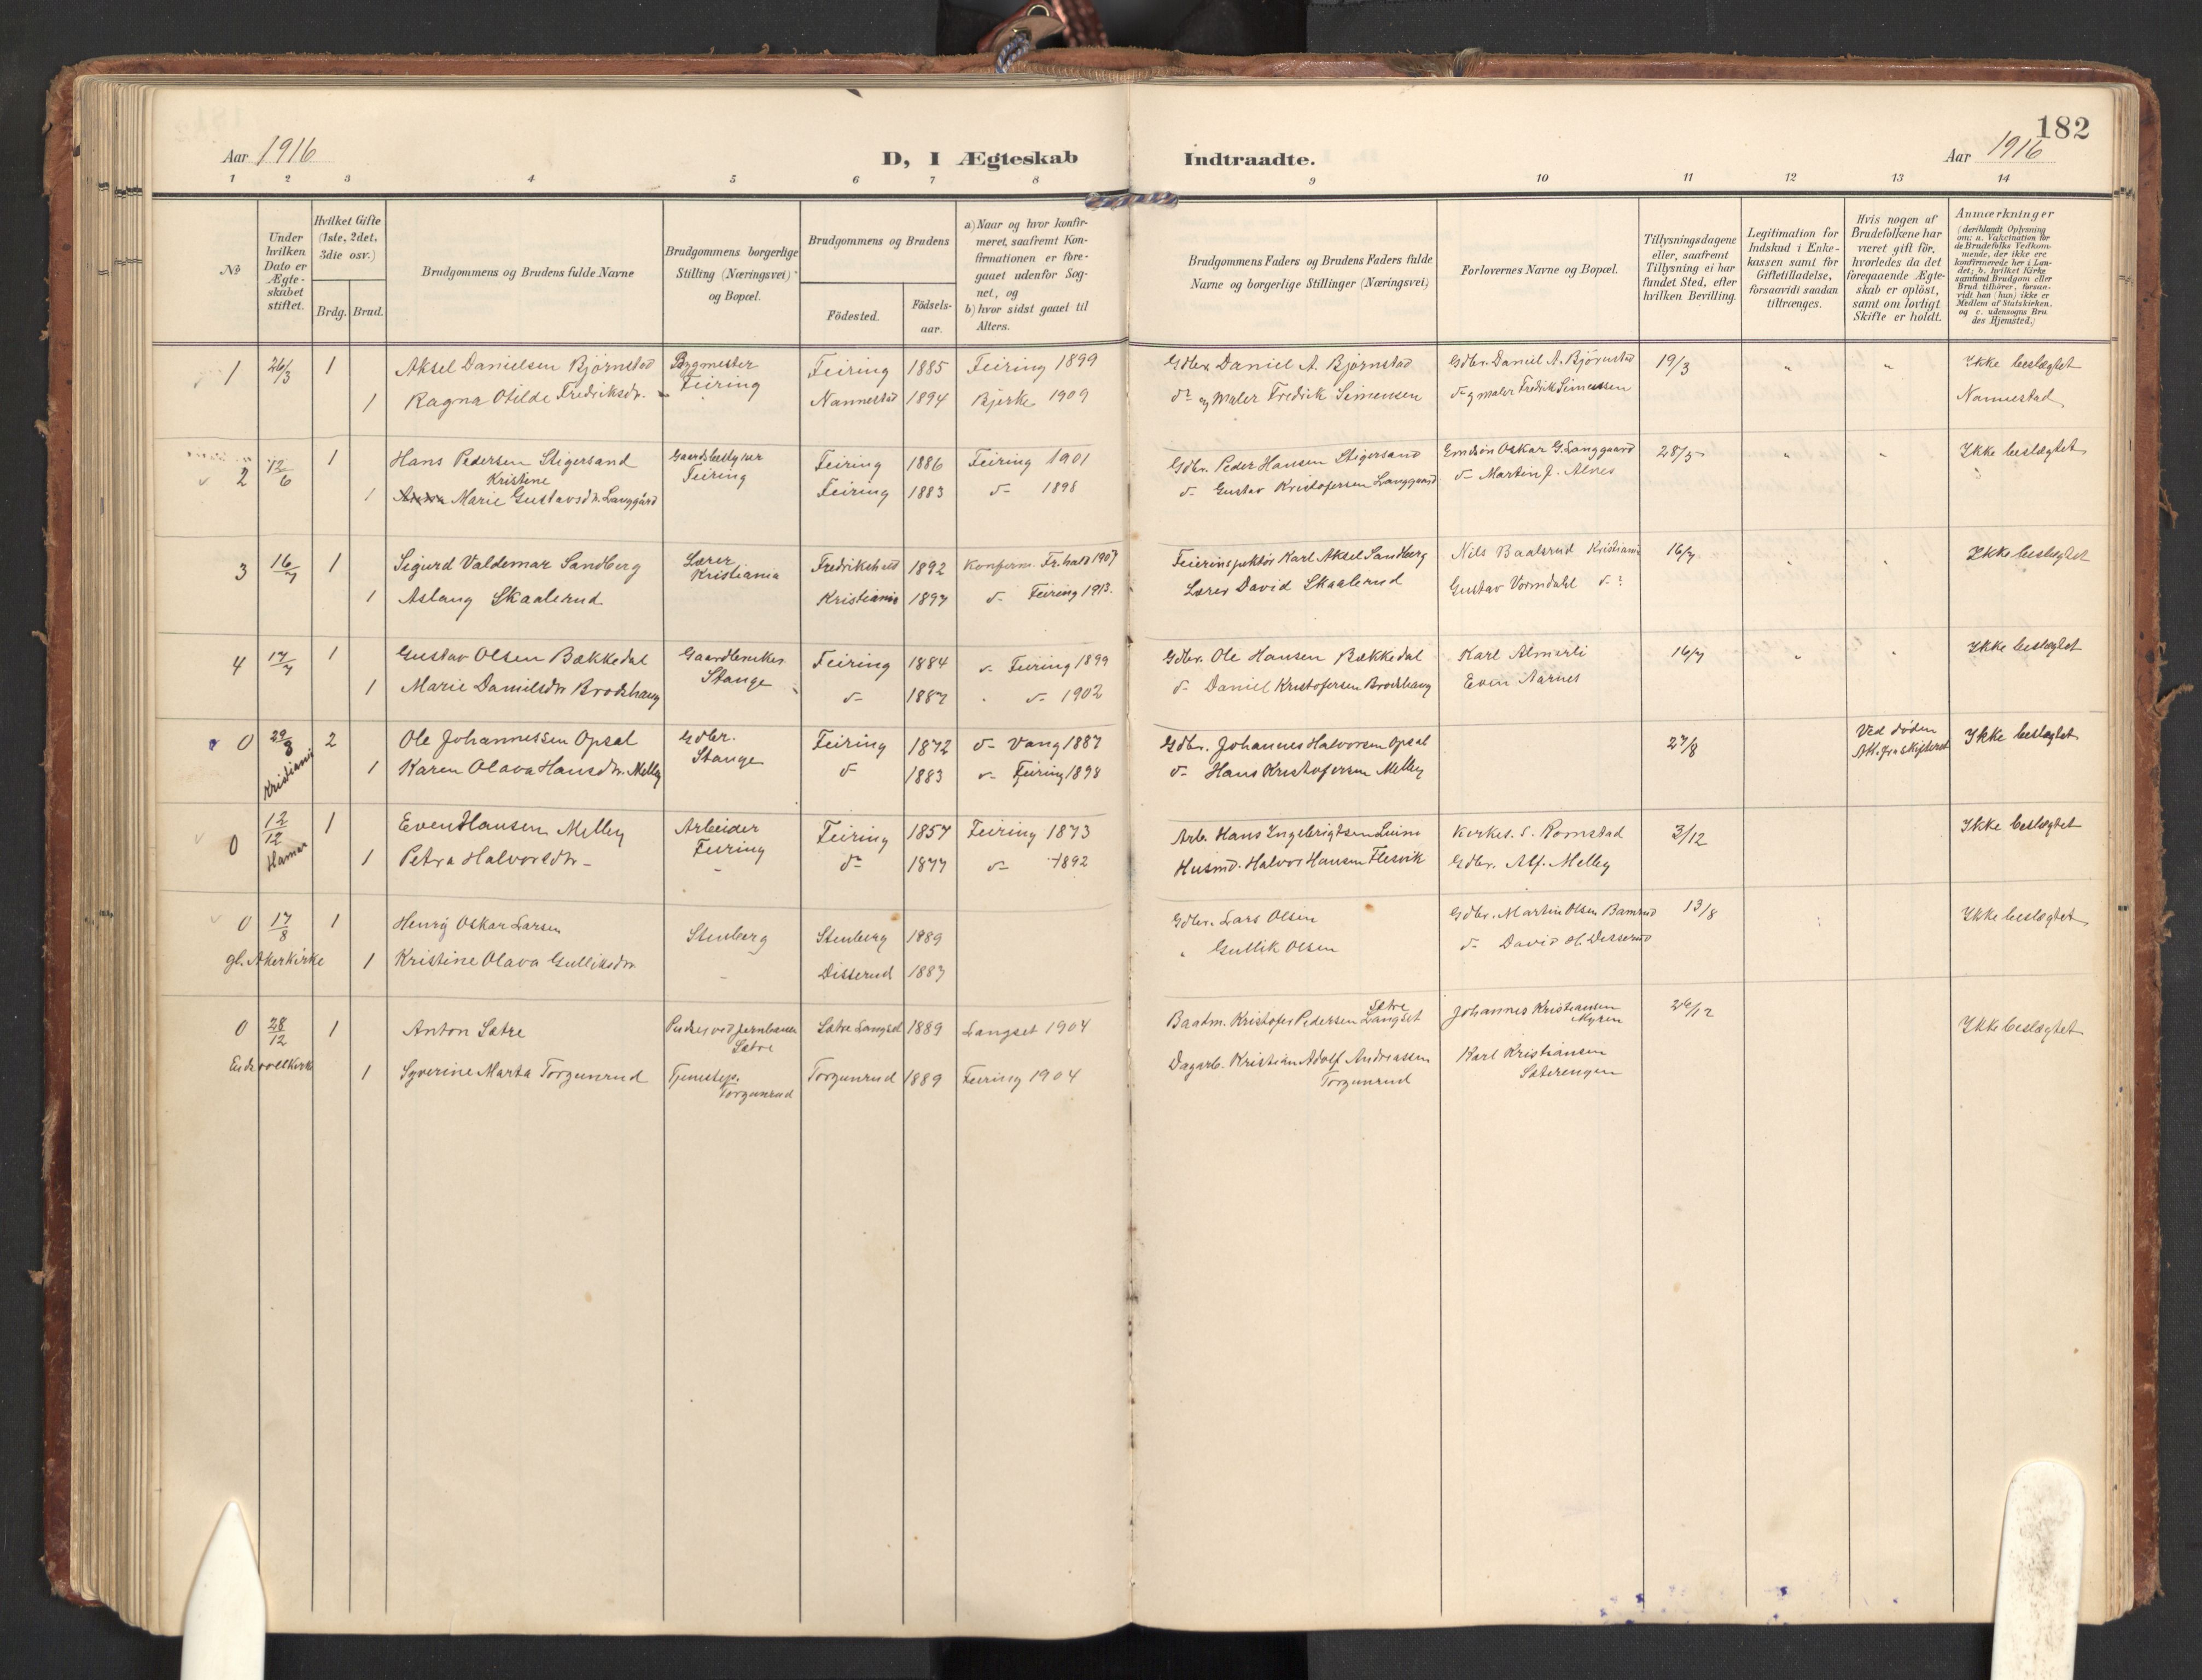 182
Aar 1916
D, I Ægteskab
Indtraadte.
Aar 1916
1 2 3 4 5 6 7 8 9 10 11 12 13 14
No
Under hvilken Dato er Ægte-skabet stiftet.
Hvilket Gifte (1ste, 2det, 3die osv.)
Brdg. Brud.
Brudgommens og Brudens fulde Navne
Brudgommens borgerlige Stilling (Næringsvei) og Bopæl.
Brudgommens og Brudens
Födested.
Födsels-aar.
a) Naar og hvor konfir-meret, saafremt Kon-firmationen er fore-gaaet udenfor Sog-net, og
b) hvor sidst gaaet til Alters.
Brudgommens Faders og Brudens Faders fulde Navne og borgerlige Stillinger (Næringsvei)
Forlovernes Navne og Bopæl.
Tillysningsdagene eller, saafremt Tillysning ei har fundet Sted, efter hvilken Bevilling.
Legitimation for Indskud i Enke-kassen samt for Giftetilladelse, forsaavidt saadan tiltrænges.
Hvis nogen af Brudefolkene har været gift för, hvorledes da det foregaaende Ægte-skab er oplöst, samt om lovligt Skifte er holdt.
Anmærkninger (deriblandt Oplysning om: a. Vakcination for de Brudefolks Vedkom-mende, der ikke ere konfirmerede her i Lan-det; b. hvilket Kirke samfund Brudgom eller Brud tilhörer, forsaa-vidt han (hun) ikke er Medlem af Statskirken, og c. udensogns Bru des Hjemsted.)
1 26/3 1 Aksel Danielsen Björnstad Bygmester Feiring Feiring 1885 Feiring 1899 Gdbr. Daniel A. Björnstad Gdbr. Daniel A. Björnstad 19/3 " " Ikke beslægtet
1 Ragna Otilde Fredriksdr. Nannestad 1894 Bjerke 1909 do og Maler Fredrik Simensen do og maler Fredrik Simensen Nannestad
2 12/6 1 Hans Pedersen Stigersand Gaardsbestyrer Feiring Feiring 1886 Feiring 1901 Gdbr. Peder Hansen Stigersand Oskar G. Langgaard 28/5 " " Ikke beslægtet
Kristine
1 Anna Marie Gustavsdr. Langgård Feiring 1883 do 1898 do Gustav Kristofersen Langgaard do Martin J. Alnes
3 16/7 1 Sigurd Valdemar Sandberg Lærer Kristiania Fredrikshald 1892 Konferm. Fr.hald 1907 Feierinspektör Karl Aksel Sandberg Nils Baalsrud Kristiania 16/7 " " Ikke beslægtet
1 Aslaug Skaalerud Kristiania 1897 do Feiring 1913. Lærer David Skaalerud Gustav Vormdahl do
4 17/7 1 Gustav Olsen Bækkedal Gaardbruker Stange Feiring 1884 do Feiring 1899 Gdbr. Ole Hansen Bækkedal Karl Almerli 16/7 " " Ikke beslægtet
1 Marie Danielsdr Brodshaug do 1887 do 1902 do Daniel Kristofersen Brodshaug Even Aarnes
0 29/8 2 Ole Johannessen Opsal Gdbr. Stange Feiring 1872 do Vang 1887 Gdbr. Johannes Halvorsen Opsal 27/8 Ved döden Ikke beslægtet
Kristiania
1 Karen Olava Hansdr. Melby do 1883 do Feiring 1898 do Hans Kristofersen Melby
0 12/12 1 Even Hansen Melby Arbeider Feiring Feiring 1857 Feiring 1873 Arb. Hans Ingebrigtsen Kirkes. S. Romstad 3/12 Ikke beslægtet
Hamar
1 Petra Halvorsdr. do 1877 do 1892 Husmd. Halvor Hansen Flesvik Gdbr. Alf. Melby
0 17/8 1 Henrÿ Oskar Larsen Stenberg Stenberg 1889 Gdbr. Lars Olsen Gdbr. Martin Olsen 13/8 Ikke beslægtet
gl. Akerkirke 1 Kristine Olava Gulliksdr. Disserud 1887 " Gullik Olsen do David H. Disserud
0 28/12 1 Anton Sætre Pudser ved jernbanen Sætre Sætre Langset 1889 Langset 1904 Baadm. Kristofer Pedersen Sætre Langset Johannes Kristiansen Myren 26/12 Ikke beslægtet
Eidsvoll kirke 1 Syverine Marta Torgunrud Tjenestep. Torgunrud Torgunrud 1889 Feiring 1904 Dagarb. Kristian Adolf Andreassen Torgunrud Karl Kristiansen Sæterengen